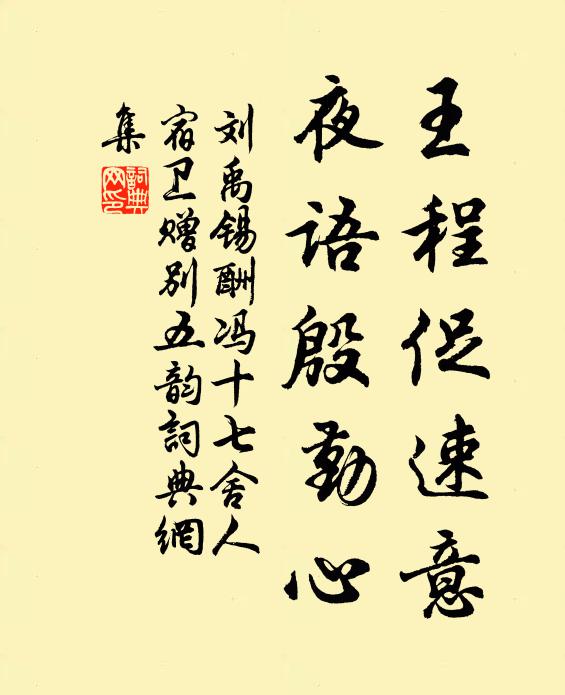 王程促速意
夜语殷勤心
刘禹锡酬冯十七舍人
宿卫赠别五韵詞典網
集
詞典
网印